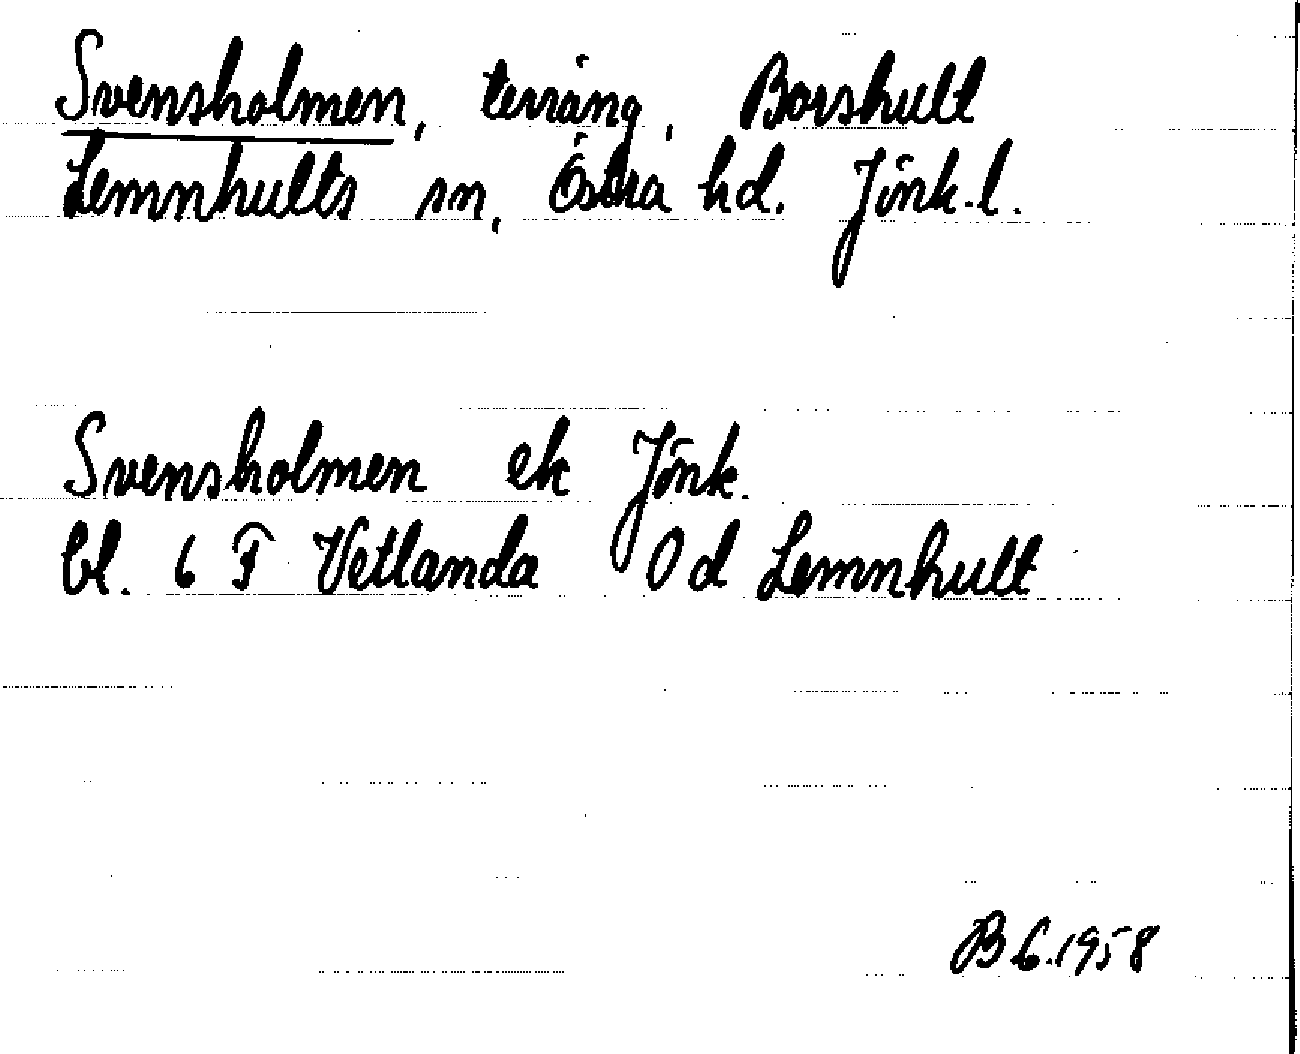 Svensholmen, terräng, Borshult
Lemnhults sn, Östra hd. Jönk.l.
Svensholmen ek Jönk.
bl. 6 F Vetlanda 0 d Lemnhult
B G.1958